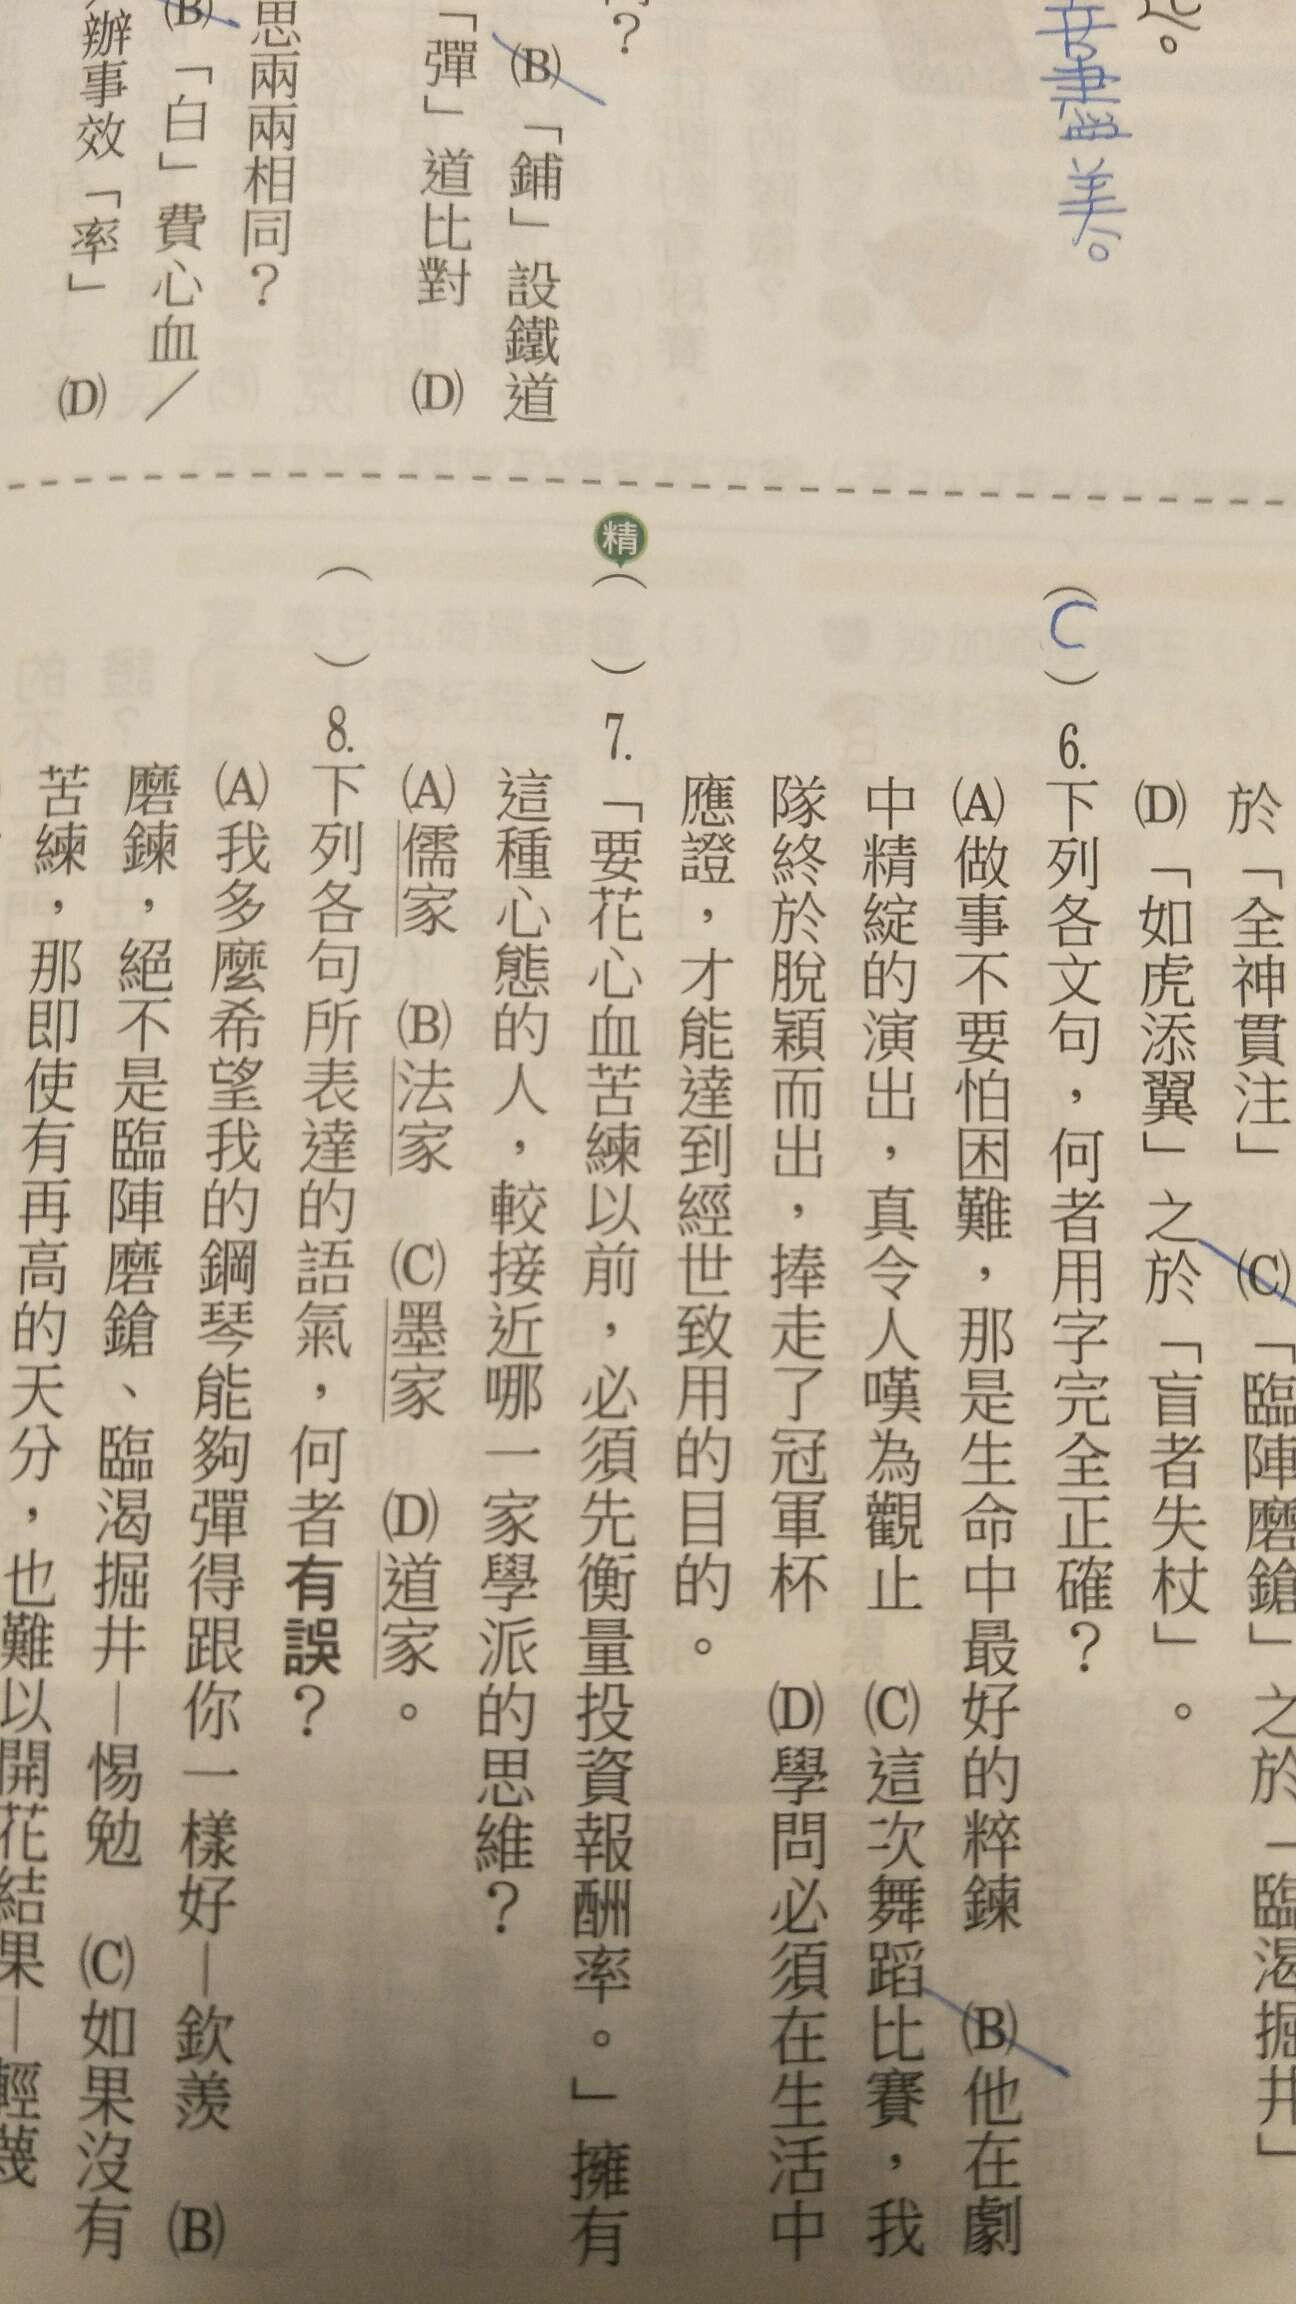 美。
「鋪」設鐵道
(B)
「彈」道比對 (D)
思兩兩相同？
(B)「白」費心血／
辦事效「率」 (D)
於「全神貫注」 (C)「臨陣磨鎗」之於「臨渴掘井」
(D)「如虎添翼」之於「盲者失杖」。
(C) 6. 下列各文句，何者用字完全正確？
(A)做事不要怕困難，那是生命中最好的粹鍊 (B)他在劇
中精綻的演出，真令人嘆為觀止 (C)這次舞蹈比賽，我
隊終於脫穎而出，捧走了冠軍杯 (D)學問必須在生活中
應證，才能達到經世致用的目的。
精
( ) 7. 「要花心血苦練以前，必須先衡量投資報酬率。」擁有
這種心態的人，較接近哪一家學派的思維？
(A)儒家 (B)法家 (C)墨家 (D)道家。
( ) 8. 下列各句所表達的語氣，何者有誤？
(A)我多麼希望我的鋼琴能夠彈得跟你一樣好—欽羨 (B)
磨鍊，絕不是臨陣磨鎗、臨渴掘井—惕勉 (C)如果沒有
苦練，那即使有再高的天分，也難以開花結果—輕蔑